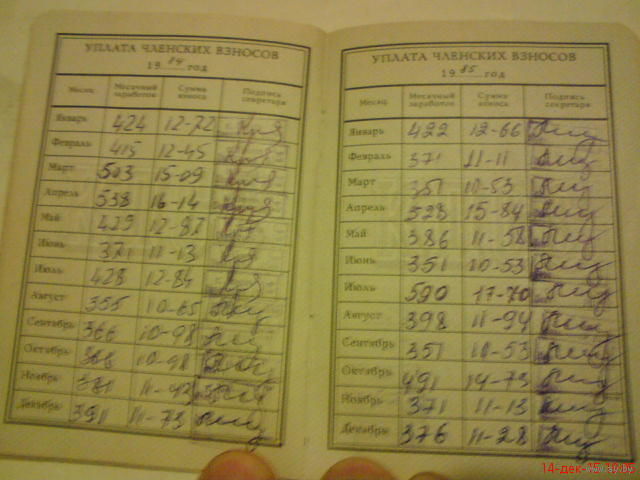 УПЛАТА ЧЛЕНСКИХ ВЗНОСОВ
19 84 год
Месяц Месячный заработок Сумма взноса Подпись секретаря
Январь 424 12-72
Февраль 415 12-45
Март 503 15-09
Апрель 538 16-14
Май 429 12-87
Июнь 371 11-13
Июль 428 12-84
Август 355 10-65
Сентябрь 366 10-98
Октябрь 366 10-98
Ноябрь 381 11-42
Декабрь 391 11-73
УПЛАТА ЧЛЕНСКИХ ВЗНОСОВ
19 85 год
Месяц Месячный заработок Сумма взноса Подпись секретаря
Январь 422 12-66
Февраль 371 11-11
Март 351 10-53
Апрель 528 15-84
Май 386 11-58
Июнь 351 10-53
Июль 590 17-70
Август 398 11-94
Сентябрь 351 10-53
Октябрь 491 14-73
Ноябрь 371 11-13
Декабрь 376 11-28
14-дек-05